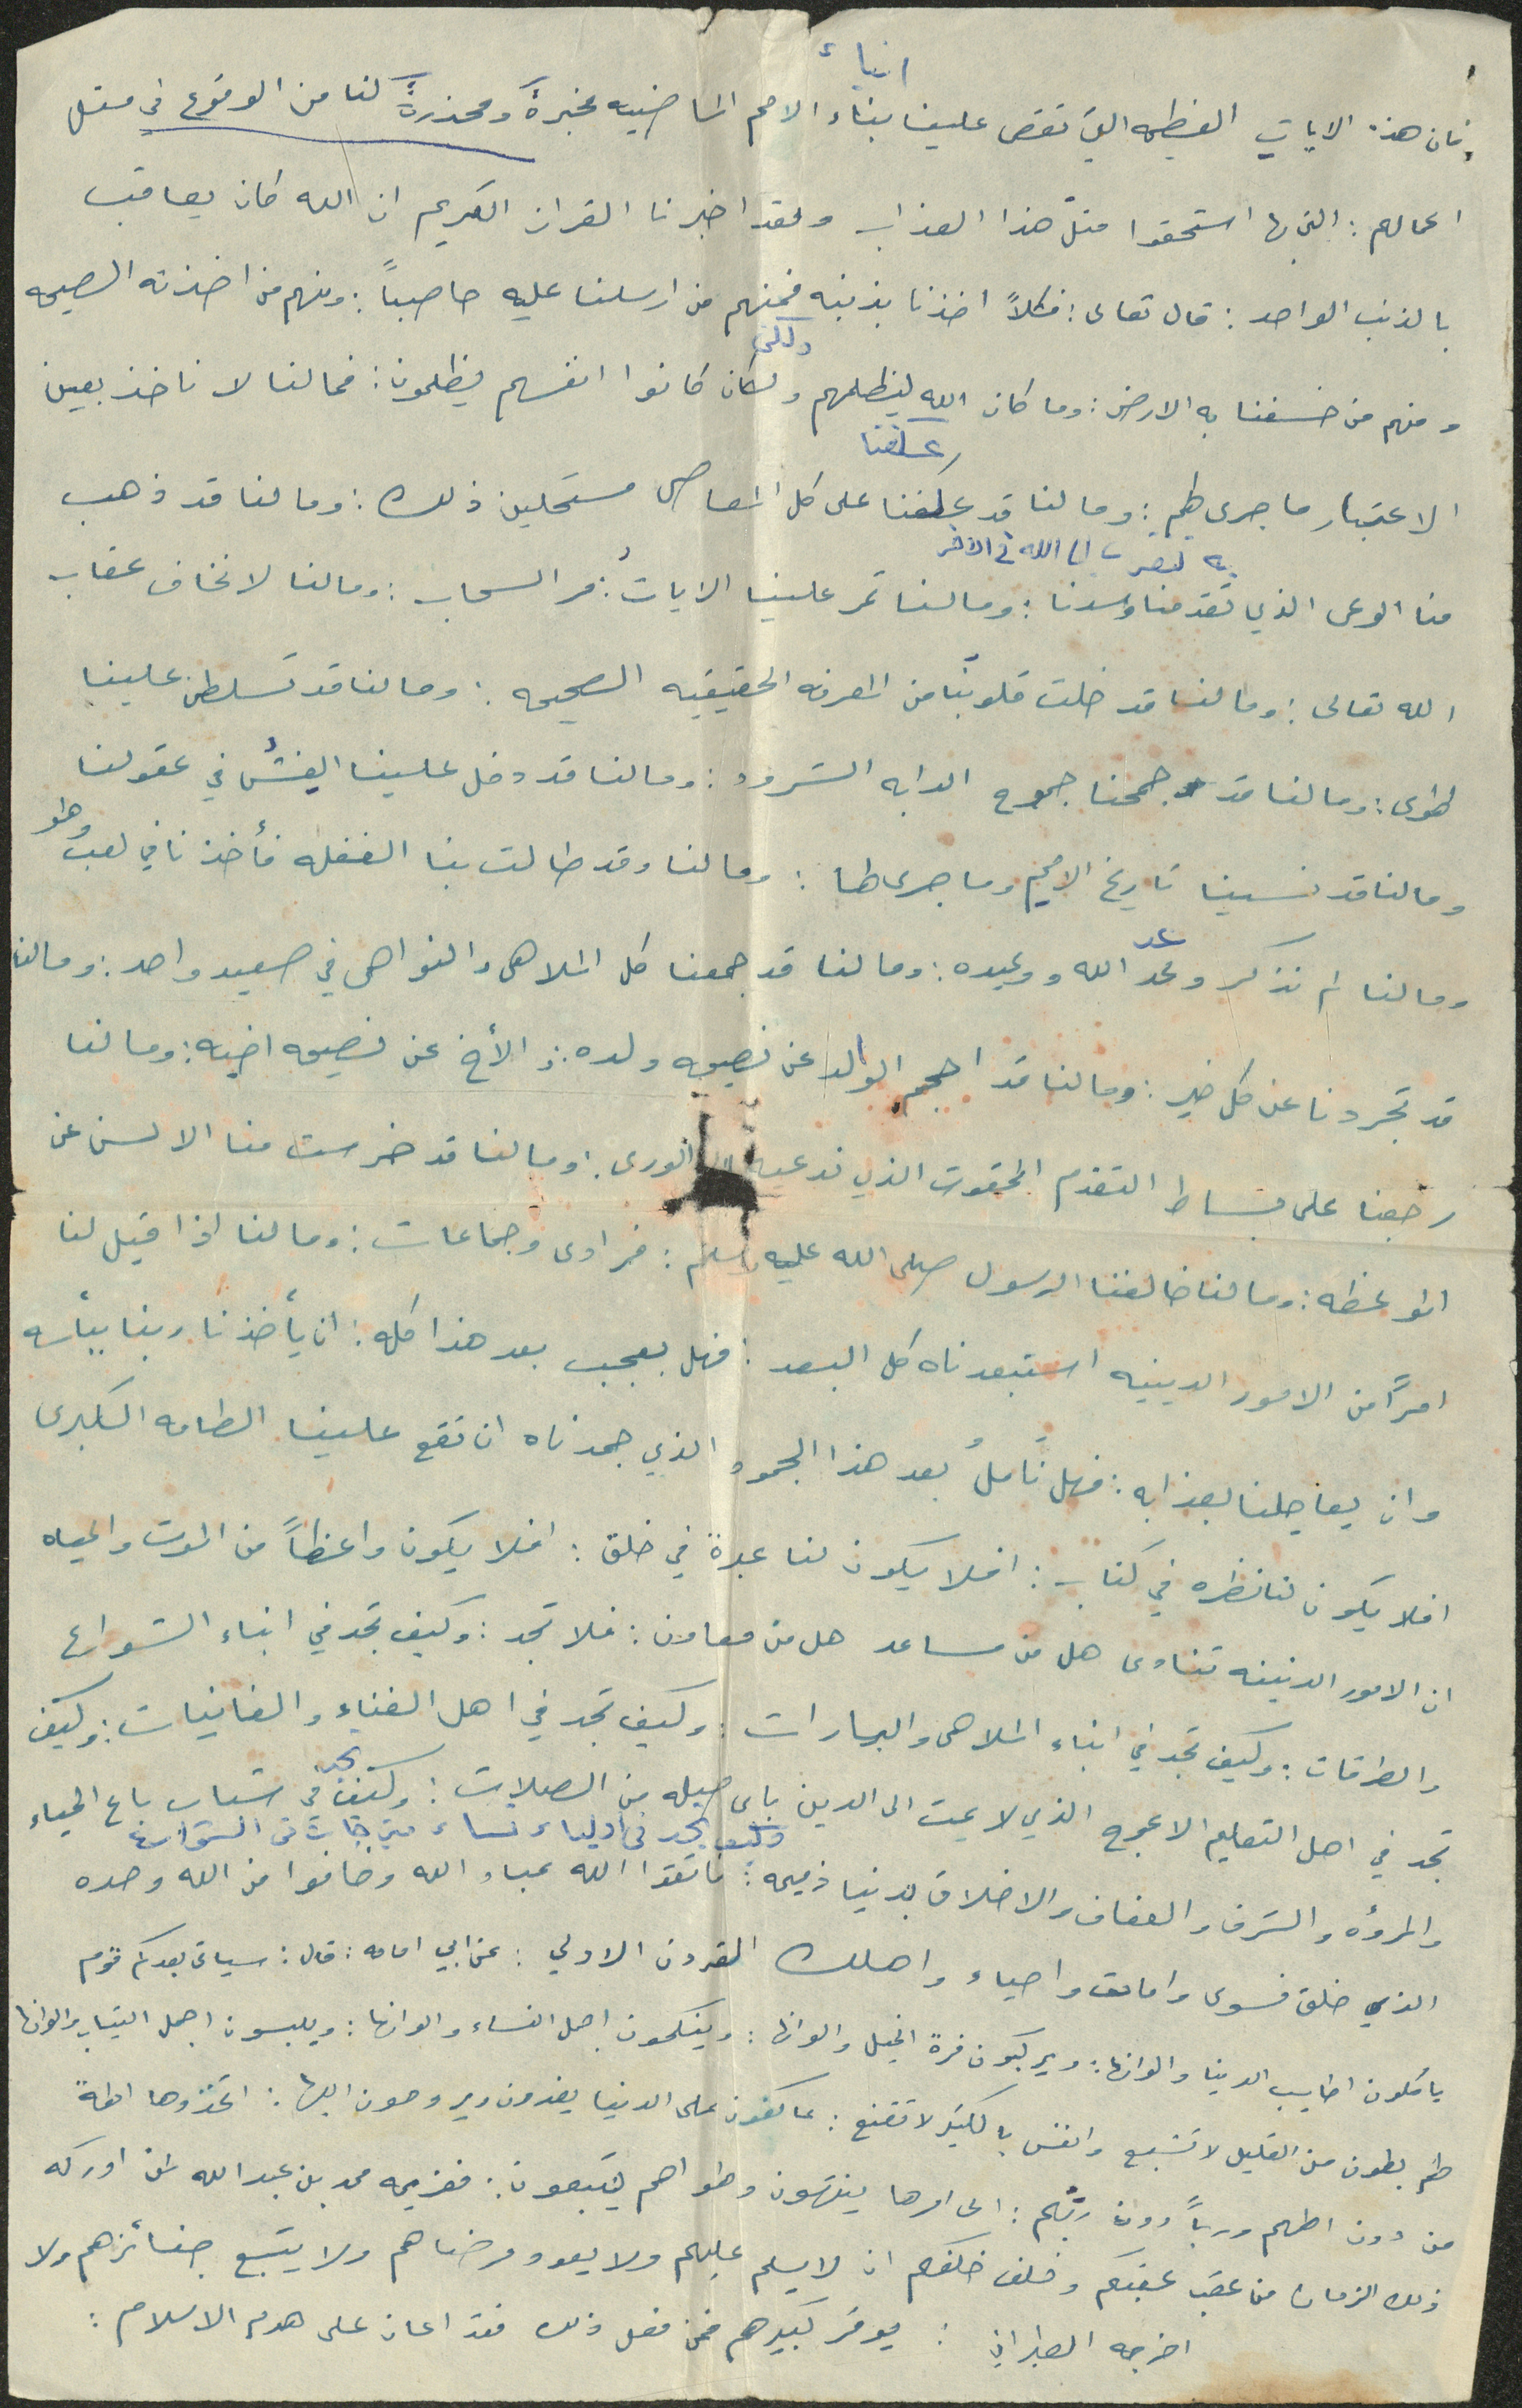 انباء
فان هذه الايات العظيمه التي تقص علينا بناء الامم الماضيه مخبرةً ومحذرةً لنا من الوقوع في مثل
اعمالهم : التي بها استحقوا مثل هذا العذاب ولقد اخبرنا القران الكريم ان الله كان يعاقب
بالذنب الواحد : قال تعالى : فكلاً اخذنا بذنبه فمنهم من ارسلنا عليه حاصباً : ومنهم من اخذته الصيحه
ولكن
ومنهم من خسفنا به الارض : وما كان الله ليظلمهم ولكان كانوا انفسهم يظلمون : فما لنا لا ناخذ بعين
عكفنا
الاعتبار ما جرى لهم : وما لنا قد عكفنا على كل المعاصى مستحلين ذلك : وما لنا قد ذهب
به لنصر الى الله في
منا الوعى الذي تقدمنا وسدنا : وما لنا تمر علينا الاياتُ : مر السحاب : وما لنا لا نخاف عقاب
الله تعالى : وما لنا قد خلت قلوبنا من المعرفه الحقيقيه الصحيحه : وما لنا قد تسلطن علينا
الهوى : وما لنا قد جمحنا جموح الدابه الشرود : وما لنا قد دخل علينا الغشُ في عقولنا
وما لنا قد نسينا تاريخ الامم وما جرى لها : وما لنا وقد طالت بنا الغفله فأخذنا في لعب ولهو
عد
وما لنا لم نذكر وعد الله ووعيده : وما لنا قد جمعنا كل الملاهى والنواهى في صعيد واحد : وما لنا
قد تجردنا عن كل خير : وما لنا قد احجم الوالد عن نصيحه ولده : والأخ عن نصيحه اخيه : وما لنا
رجعنا على بساط التقدم الممقوت الذي ندعيه الى الورى : وما لنا قد خرست منا الالسن عن
الموعظه : وما لنا خالفنا الرسول صلى الله عليه وسلم : فرادى وجماعات : وما لنا اذا قيل لنا
امرًا من الامور الدينيه استبعدناه كل البعد : فهل بعجب بعد هذا كله : ان يأخذنا ربنا ببأسه
وان يعاجلنا بعذابه : فهل نأمل بعد هذا الجمود الذي جمدناه ان تقع علينا الطامه الكبرى
افلا يكون لنا نظره في كتاب : افلا يكون لنا عبرة في خلق : افلا يكون واعظاً من الموت والحياه
ان الامور الدينيه تنادى هل من مساعد هل من معاون : فلا تجد : وكيف تجد في ابناء الشوارع
والطرقات : وكيف تجد في ابناء الملاهى والبارات : وكيف تجد في اهل الغناء والغانيات : وكيف
تجد
تجد في اهل التعليم الاعوج الذي لا يمت الى الدين باى صله من الصلات : وكيف في شباب باع الحياء
وكيف تجد في اولياء نساء متبرجات في الشوارع
والمروءه والشرف والعفاف والاخلاق بدنيا ذميمه : فاتقوا الله عباد الله وخافوا من الله وحده
الذي خلق فسوى وامات واحياء واهلك القرون الاولي : عن ابي امامه : قال : سياتى بعدكم قوم
ياكلون اطايب الدينا والوانها : ويركبون فرة الخيل والوانها : وينكحون اجمل النساء والوانها : ويلبسون اجمل الثياب والوانها
لهم بطون من القليل لا تشبع وانفس بالكثير لا تقنع : عاكفون على الدنيا يغدون ويروحون اليها : اتخذوها الهةً
من دون الههم ورباً دون ربهم : الى امرها ينتهون وهواهم يتبعون : فعزيمه محمد بن عبد الله لمن ادركه
ذلك الزمان من عقب عقبكم وخلف خلفكم ان لا يسلم عليهم ولا يعود مرضاهم ولا يتبع جنائزهم ولا
يوقر كبيرهم فمن فعل ذلك فقد اعان على هدم الاسلام :
اخرجه الطبراني :